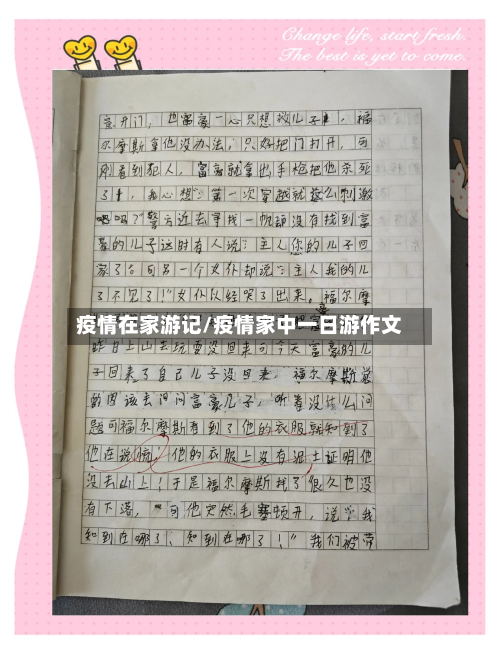 Change life, start fresh.
The best is yet to come.
开门,也富豪一心只想救儿子,福
尔摩斯拿他没办法,只好把门打开,可
刚看到犯人,富豪就拿出手枪把他杀死
了,我心想:第一次穿越就这么刺激
吗?”警方近去寻找一帆都没有找到富
豪的儿子这时有人说:主人您的儿子回
家了。可另一个女仆却说:主人我的儿
了不见了!”女仆从经哭了出来。福尔摩
疫情在家游记/疫情家中一日游作文
昨日上山去玩耍没回来可今天富豪的儿
子回来了自己儿子没回来,福尔摩斯觉
因该去问问富豪儿子,听着没什么问
题可福尔摩斯看到了他的衣服就知到了
他在说慌,他的衣服上没有泥土证明他
没去山上!于是福尔摩斯找了很久也没
有下落,可他突然毛塞顿开,说:“我
知到在哪了、知到在哪了!”我们被带